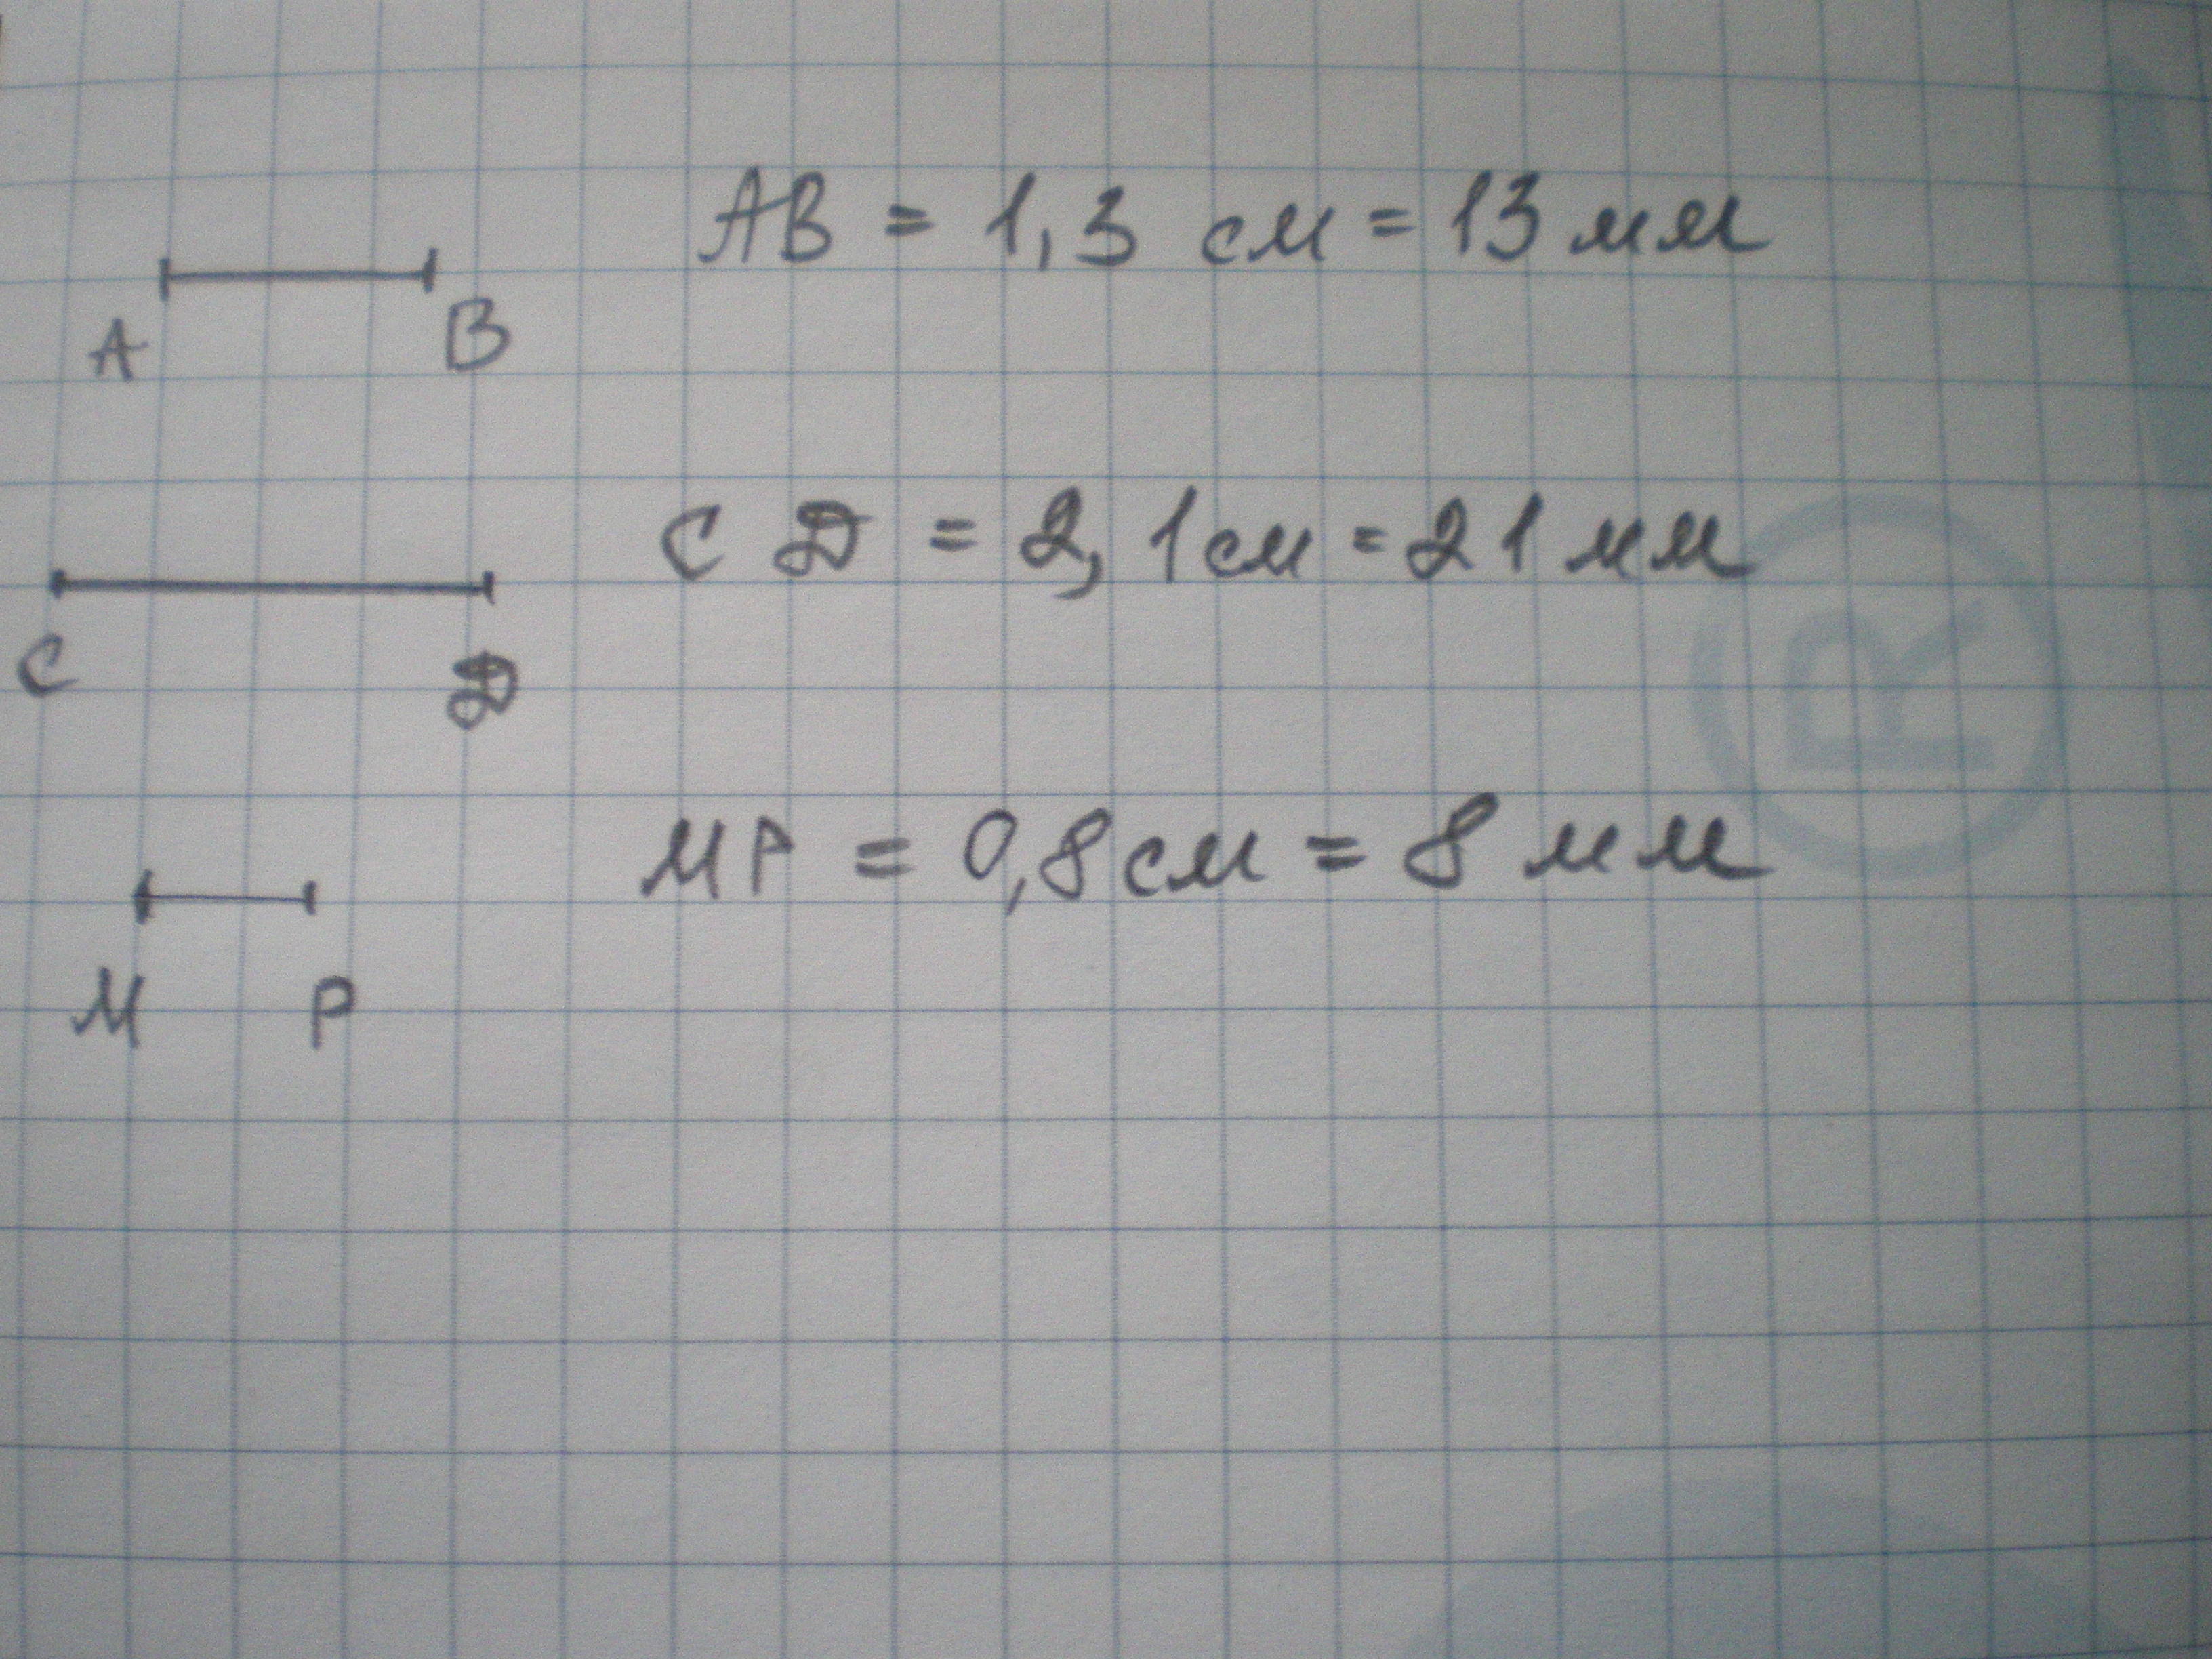 АВ = 1,3 см = 13 мм
А В
С Д = 2,1 см = 21 мм
С Д
МР = 0,8 см = 8 мм
М Р
®